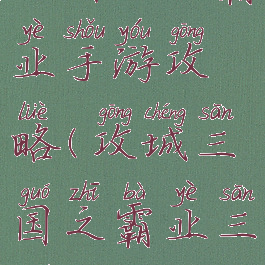 yè shǒu yóu gōng
业手游攻
lüè gōng chéng sān
略(攻城三
guó zhī bà yè sān
国之霸业三